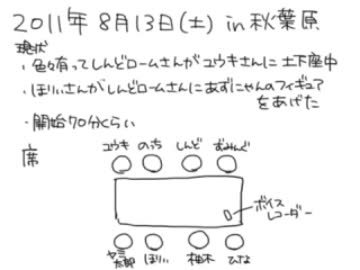 2011年 8月13日(土) in 秋葉原
現状
・色々有ってしんどロームさんがユウキさんに土下座中
・ほりぃさんがしんどロームさんにあずにゃんのフィギュア
をあげた
・開始70分くらい
席
ユウキ のっち しんど すみんぐ
ボイス
レコーダー
ヤミ太郎 ほりぃ 柚木 ひな